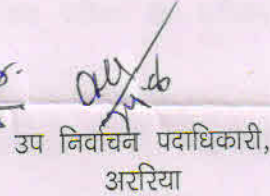 उप निर्वाचन पदाधिकारी,
अररिया